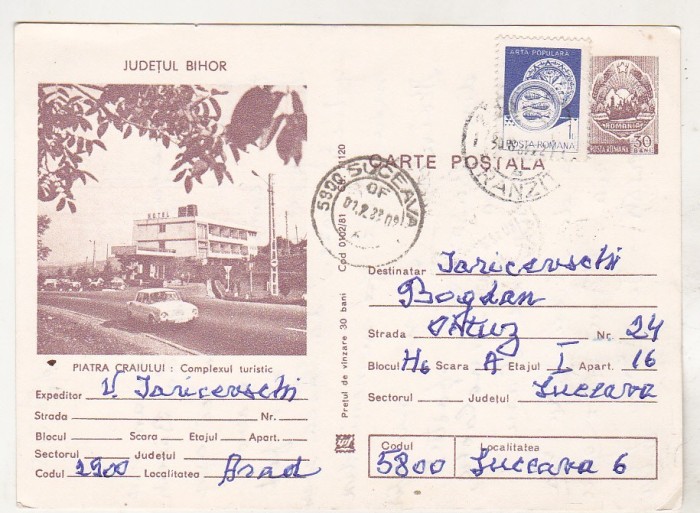 JUDEȚUL BIHOR
HOTEL
PIATRA CRAIULUI : Complexul turistic
Expeditor V. Iaricevschi
Strada Nr.
Blocul Scara Etajul Apart.
Sectorul Județul
Codul 2900 Localitatea Arad
Prețul de vînzare 30 bani Cod 0102/81
5900 SUCEAVA
OF
ARTĂ POPULARĂ
1L
POȘTA ROMÂNĂ
ROMANIA
POSTA ROMANA 30
BANI
CARTE POȘTALĂ
Destinatar Iaricevschi
Bogdan
Strada Oituz Nr. 24
Blocul H6 Scara A Etajul I Apart. 16
Sectorul Județul Suceava
Codul Localitatea
5800 Suceava 6